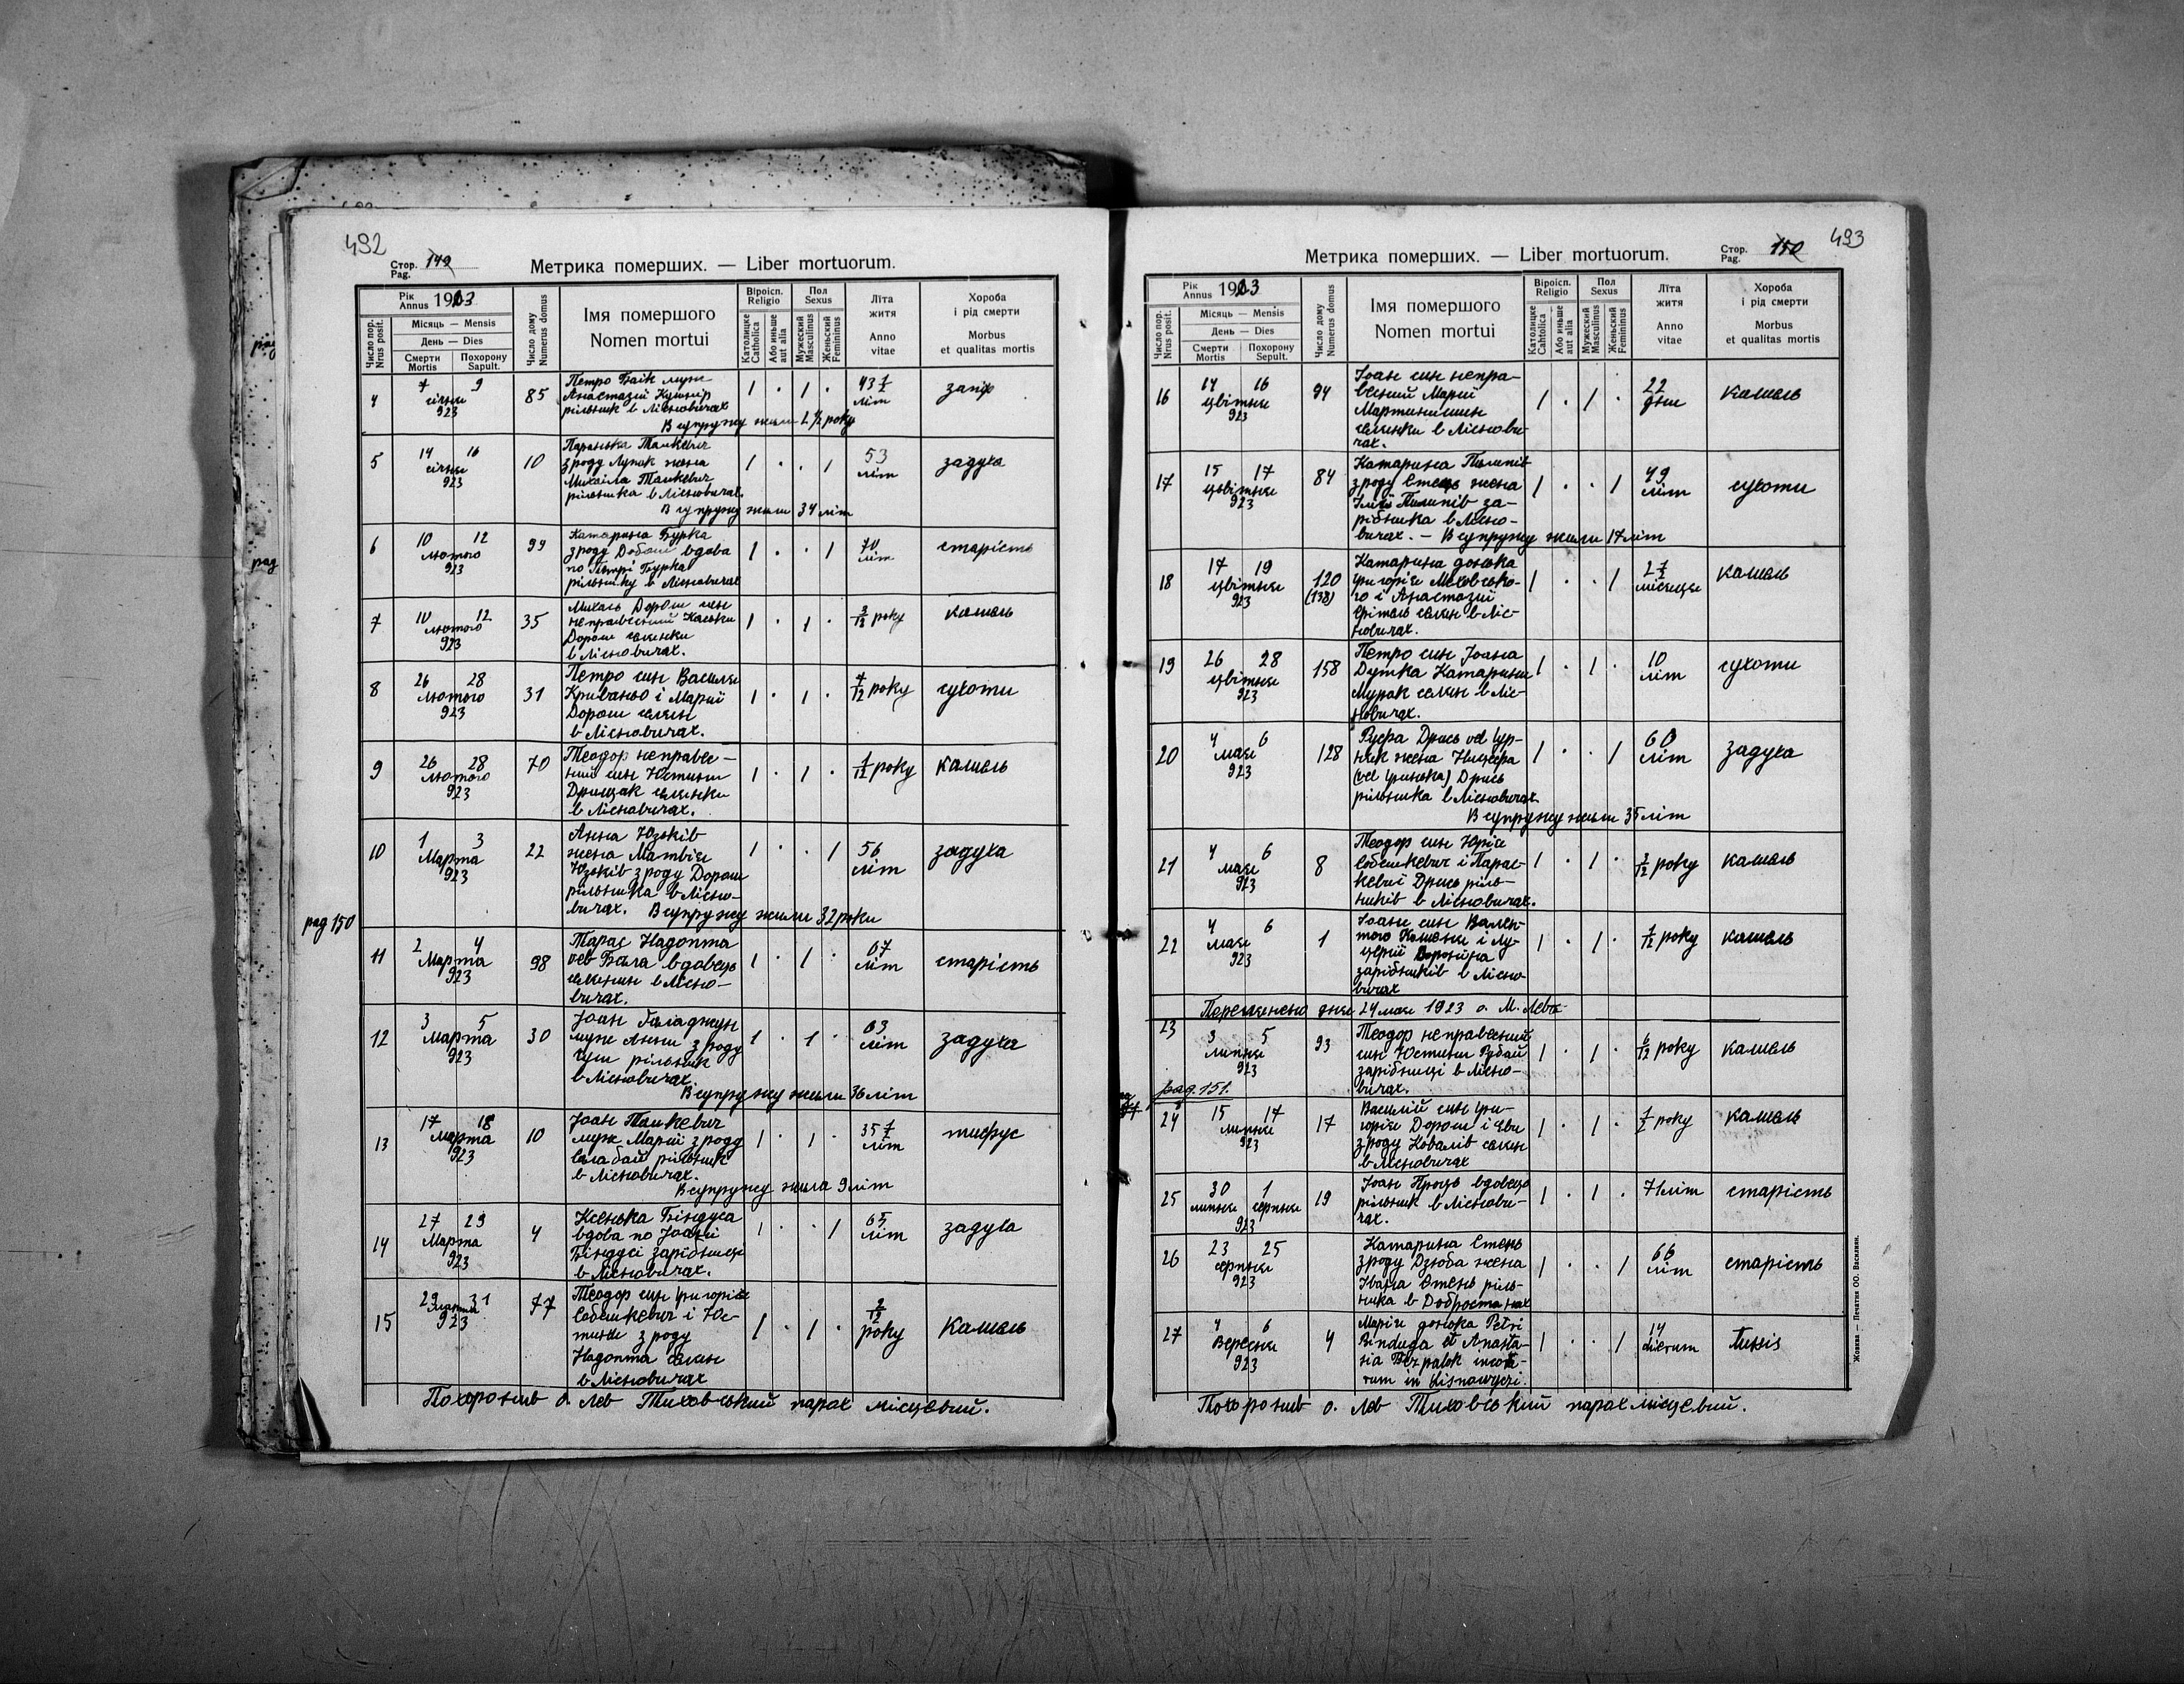 492
Стор. 149
Pag.
Метрика померших. — Liber mortuorum.
Рік
Annus 1923
Місяць — Mensis
День — Dies
Число пор.
Nrus posit.
Смерти
Mortis
Похорону
Sapult.
Число дому
Numerus domus
Імя помершого
Nomen mortui
Віроісп.
Religio
Католицке
Catholica
Або иньше
aut alia
Пол
Sexus
Мужеский
Masculinus
Женьский
Femininus
Літа
житя
Anno
vitae
Хороба
і рід смерти
Morbus
et qualitas mortis
4
7 9
січня
923
85
Петро Баік муж
Анастазії Кушнір
рільник в Лісновичах
В супружу жили 2 1/2 року
1 · 1 ·
43 1/2
літ
5
14 16
січня
923
10
Параська Танкевич
з роду Лущак жена
Михаїла Танкевич
рільника в Лісновичах.
В супружу жили 34 літ
1 · · 1
53
літ
задуха
6
10 12
лютого
923
99
Катарина Бурка
з роду Добош вдова
по Петрі Бурка
рільнику в Лісновичах
1 · · 1
70
літ
старість
7
10 12
лютого
923
35
Михаль Дорош син
неправесний Каськи
Дорош селянки
в Лісновичах.
1 · 1 ·
3/12 року
кашель
8
26 28
лютого
923
31
Петро син Василя
Кривань о і Марії
Дорош селян
в Лісновичах.
1 · 1 ·
7/12 року
сухоти
9
26 28
лютого
923
70
Теодор неправес-
ний син Юстини
Дрищак селянки
в Лісновичах.
1 · 1 ·
1/12 року
кашель
10
1 3
Марта
923
22
Анна Юзьків
жена Матвія
Юзьків з роду Дорош
рільника в Лісно-
вичах. В супружу жили 32 роки
1 · · 1
56
літ
задуха
рад 150
11
2 4
Марта
923
98
Тарас Надопта
vel Бела вдовець
селянин в Лісно-
вичах.
1 · 1 ·
67
літ
старість
12
3 5
Марта
923
30
Іоан Галаджун
муж Анни з роду
Гуш рільник
в Лісновичах
В супружу жили 36 літ
1 · 1 ·
63
літ
задуха
13
17 18
Марта
923
10
Іоан Танкевич
муж Марії з роду
Слабий рільник
в Лісновичах.
В супружу жила 9 літ
1 · 1 ·
35 1/2
літ
тифус
14
27 29
Марта
923
4
Ксенька Біндуга
вдова по Іоані
Біндузі зарібниці
в Лісновичах.
1 · · 1
65
літ
задуха
15
29 31
марта
923
77
Теодор син Григорія
Собешкевич і Юс-
тини з роду
Надопта селян
в Лісновичах
1 · 1 ·
2/12
року
Кашель
Похоронив о. Лев Тиховський парох місцевий.
рад
рад
Метрика померших. — Liber mortuorum.
Стор. 150
Pag.
493
Рік
Annus 1923
Місяць — Mensis
День — Dies
Число пор.
Nrus posit.
Смерти
Mortis
Похорону
Sepult.
Число дому
Numerus domus
Імя помершого
Nomen mortui
Віроісп.
Religio
Католицке
Cahtolica
Або иньше
aut alia
Пол
Sexus
Мужеский
Masculinus
Женьский
Femininus
Літа
житя
Anno
vitae
Хороба
і рід смерти
Morbus
et qualitas mortis
16
14 16
цвітня
923
94
Іоан син непра-
весний Марії
Мартинишин
селянки в Лісно­ви-
чах.
1 · 1 ·
22
дни
кашель
17
15 17
цвітня
923
84
Катарина Пилипів
з роду Стець жена
Ілії Пилипів за-
рібника в Лісно-
вичах. — В супружу жили 17 літ
1 · · 1
49
літ
сухоти
18
17 19
цвітня
923
120
(138)
Катарина донька
Григорія Меховсько-
го і Анастазії
селян в Ліс-
новичах.
1 · · 1
2 1/2
місяця
кашель
19
26 28
цвітня
923
158
Петро син Іоана
Дутка Катарини
Мурак селян в Ліс-
новичах.
1 · 1 ·
10
літ
сухоти
20
4 6
мая
923
128
Руфа Дрись vel Гур-
няк жена Никифра
(vel Гринька) Дрись
рільника в Лісновичах
В супружу жили 35 літ
1 · · 1
60
літ
задуха
21
4 6
мая
923
8
Теодор син Юрія
Собешкевич і Парас-
кевії Дрись ріль-
ників в Лісновичах.
1 · 1 ·
2/12 року
кашель
22
4 6
мая
923
1
Іоан син Вален-
того і Лу-
церії Воронка
зарібників в Лісно-
вичах
1 · 1 ·
1/12 року
кашель
дня 24 мая 1923 о. М.
23
3 5
липня
923
93
Теодор неправесний
син Юстини Рубай
зарібниці в Лісно-
вичах.
1 · 1 ·
6/12 року
кашель
рад. 151.
24
15 17
липня
923
17
Василій син Гри-
горія Дорош і Еви
з роду Ковалів селян
в Лісновичах
1 · 1 ·
1/2 року
кашель
25
30 1
липня серпня
923
19
Іоан Проць вдовець
рільник в Лісно­ви-
чах.
1 · 1 ·
71 літ
старість
26
23 25
серпня
923
Катарина Стень
з роду Дзюба жена
Івана Стень ріль-
ника в Добростанах
1 · · 1
66
літ
старість
27
4 6
Вересня
923
4
Марія донька Petri
Binduga et Anasta-
sia Bezpalok incola-
rum in Lisnowyczi.
1 · · 1
14
dierum
tussis
Похоронив о. Лев Тиховський парох місцевий.
Жовква — Печатня ОО. Василиян.